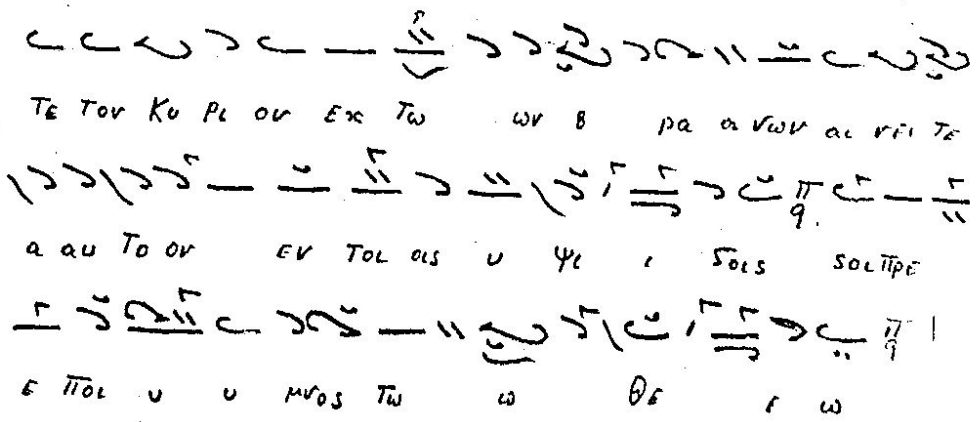 ΤΕ ΤΟΝ ΚΥ ΡΙ ΟΝ ΕΚ ΤΩ ΩΝ Β ΡΑ Α ΝΩΝ ΑΙ ΝΕΙ ΤΕ
Α ΑΥ ΤΟ ΟΝ ΕΝ ΤΟΙ ΟΙΣ Υ ΨΙ Ι ΣΤΟΙΣ ΣΟΙ ΠΡΕ
Ε ΠΟΙ Υ Υ ΜΝΟΣ ΤΩ Ω ΘΕ Ε Ω